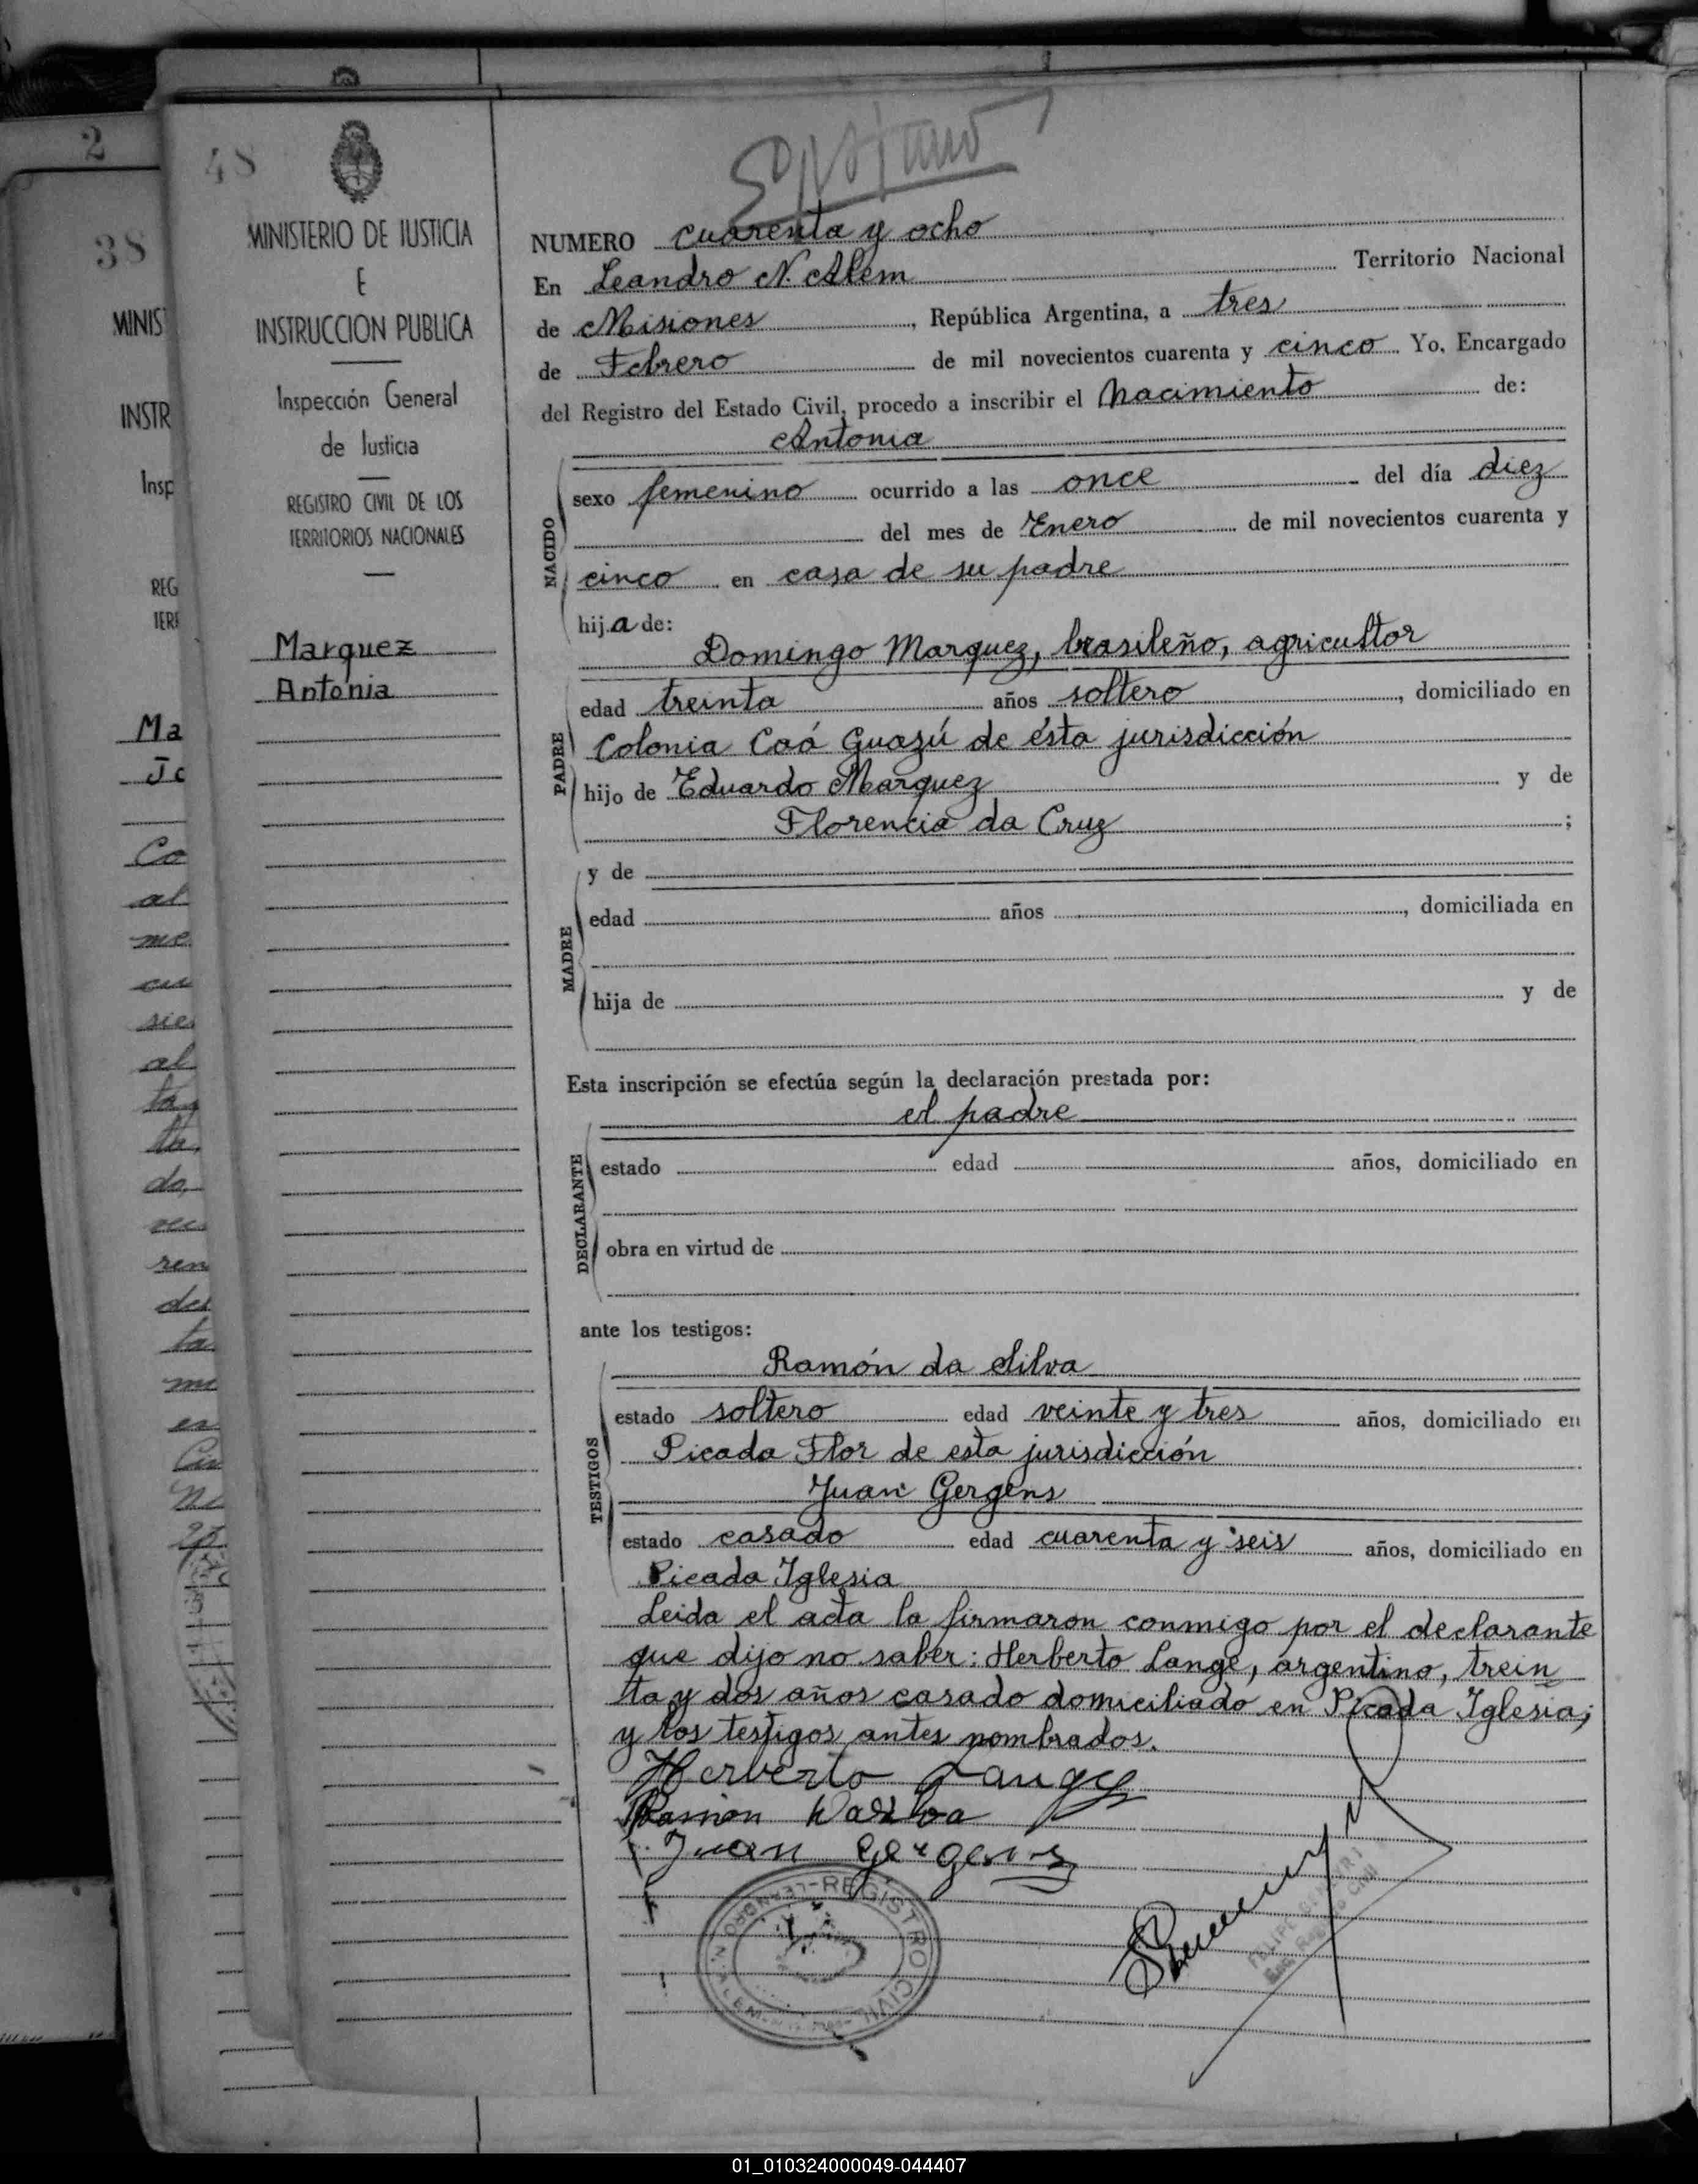 2
38
MINIS
INSTR
Insp
REG
Ma
Co
al
me
sie
al
do,
ren
des
ta
48
MINISTERIO DE JUSTICIA
E
INSTRUCCION PUBLICA
Inspección General
de Justicia
REGISTRO CIVIL DE LOS
TERRITORIOS NACIONALES
Marquez
Antonia
NUMERO cuarenta y ocho
En Leandro N. Alem Territorio Nacional
de Misiones, República Argentina, a tres
de Febrero de mil novecientos cuarenta y cinco Yo, Encargado
del Registro del Estado Civil, procedo a inscribir el nacimiento de:
Antonia
NACIDO
sexo femenino ocurrido a las once del día diez
del mes de Enero de mil novecientos cuarenta y
cinco en casa de su padre
hija de:
Domingo Marquez, brasileño, agricultor
PADRE
edad treinta años soltero, domiciliado en
Colonia Caá Guazú de ésta jurisdicción
hijo de Eduardo Marquez y de
Florencia da Cruz;
MADRE
y de
edad años, domiciliada en
hija de y de
Esta inscripción se efectúa según la declaración prestada por:
el padre
DECLARANTE
estado edad años, domiciliado en
obra en virtud de
ante los testigos:
TESTIGOS
Ramón da Silva
estado soltero edad veinte y tres años, domiciliado en
Picada Flor de esta jurisdicción
Juan Gergens
estado casado edad cuarenta y seis años, domiciliado en
Picada Iglesia
Leida el acta la firmaron conmigo por el declarante
que dijo no saber: Herberto Lange, argentino, trein
ta y dos años casado domiciliado en Picada Iglesia;
y los testigos antes nombrados.
Herberto Lange
Ramon
Juan Gergens
REGISTRO CIVIL
LEANDRO N. ALEM
01_010324000049-044407